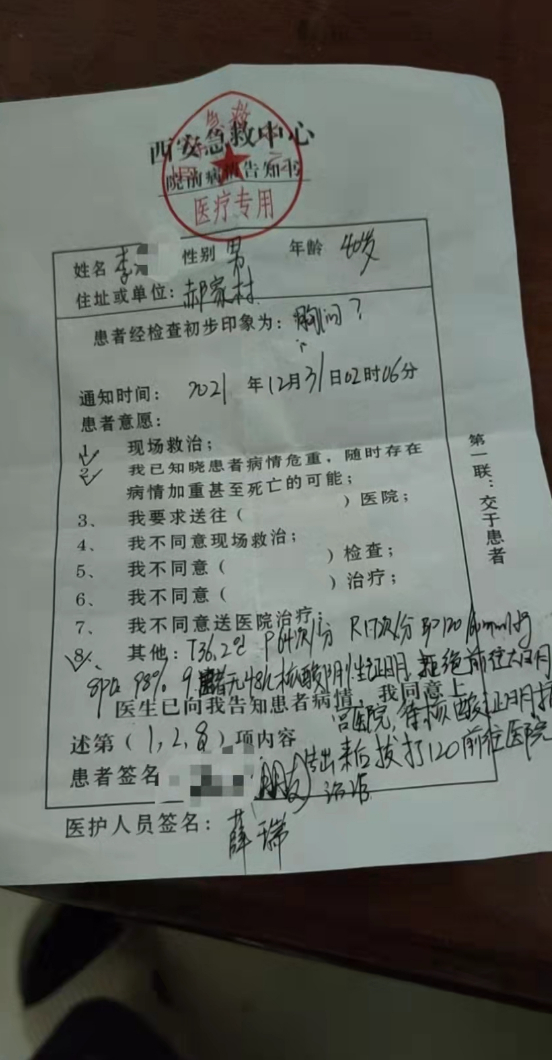 西安急救中心
院前病情告知书
医疗专用
姓名 李 性别 男 年龄 40岁
住址或单位：郝家村
患者经检查初步印象为：胸闷？
通知时间：2021年12月31日02时06分
患者意愿：
1、现场救治；
2、我已知晓患者病情危重，随时存在
病情加重甚至死亡的可能；
3、我要求送往（ ）医院；
4、我不同意现场救治；
5、我不同意（ ）检查；
6、我不同意（ ）治疗；
7、我不同意送医院治疗；
8、其他：T36.2℃ P64次/分 R17次/分 BP120/ mmHg
98% 9. 患者无48h核酸阴性证明，拒绝前往大明
宫医院，待核酸证明
出来后拨打120前往医院
治疗
医生已向我告知患者病情，我同意上
述第（1，2，8）项内容
患者签名 （朋友）
医护人员签名：薛瑞
第一联：交于患者